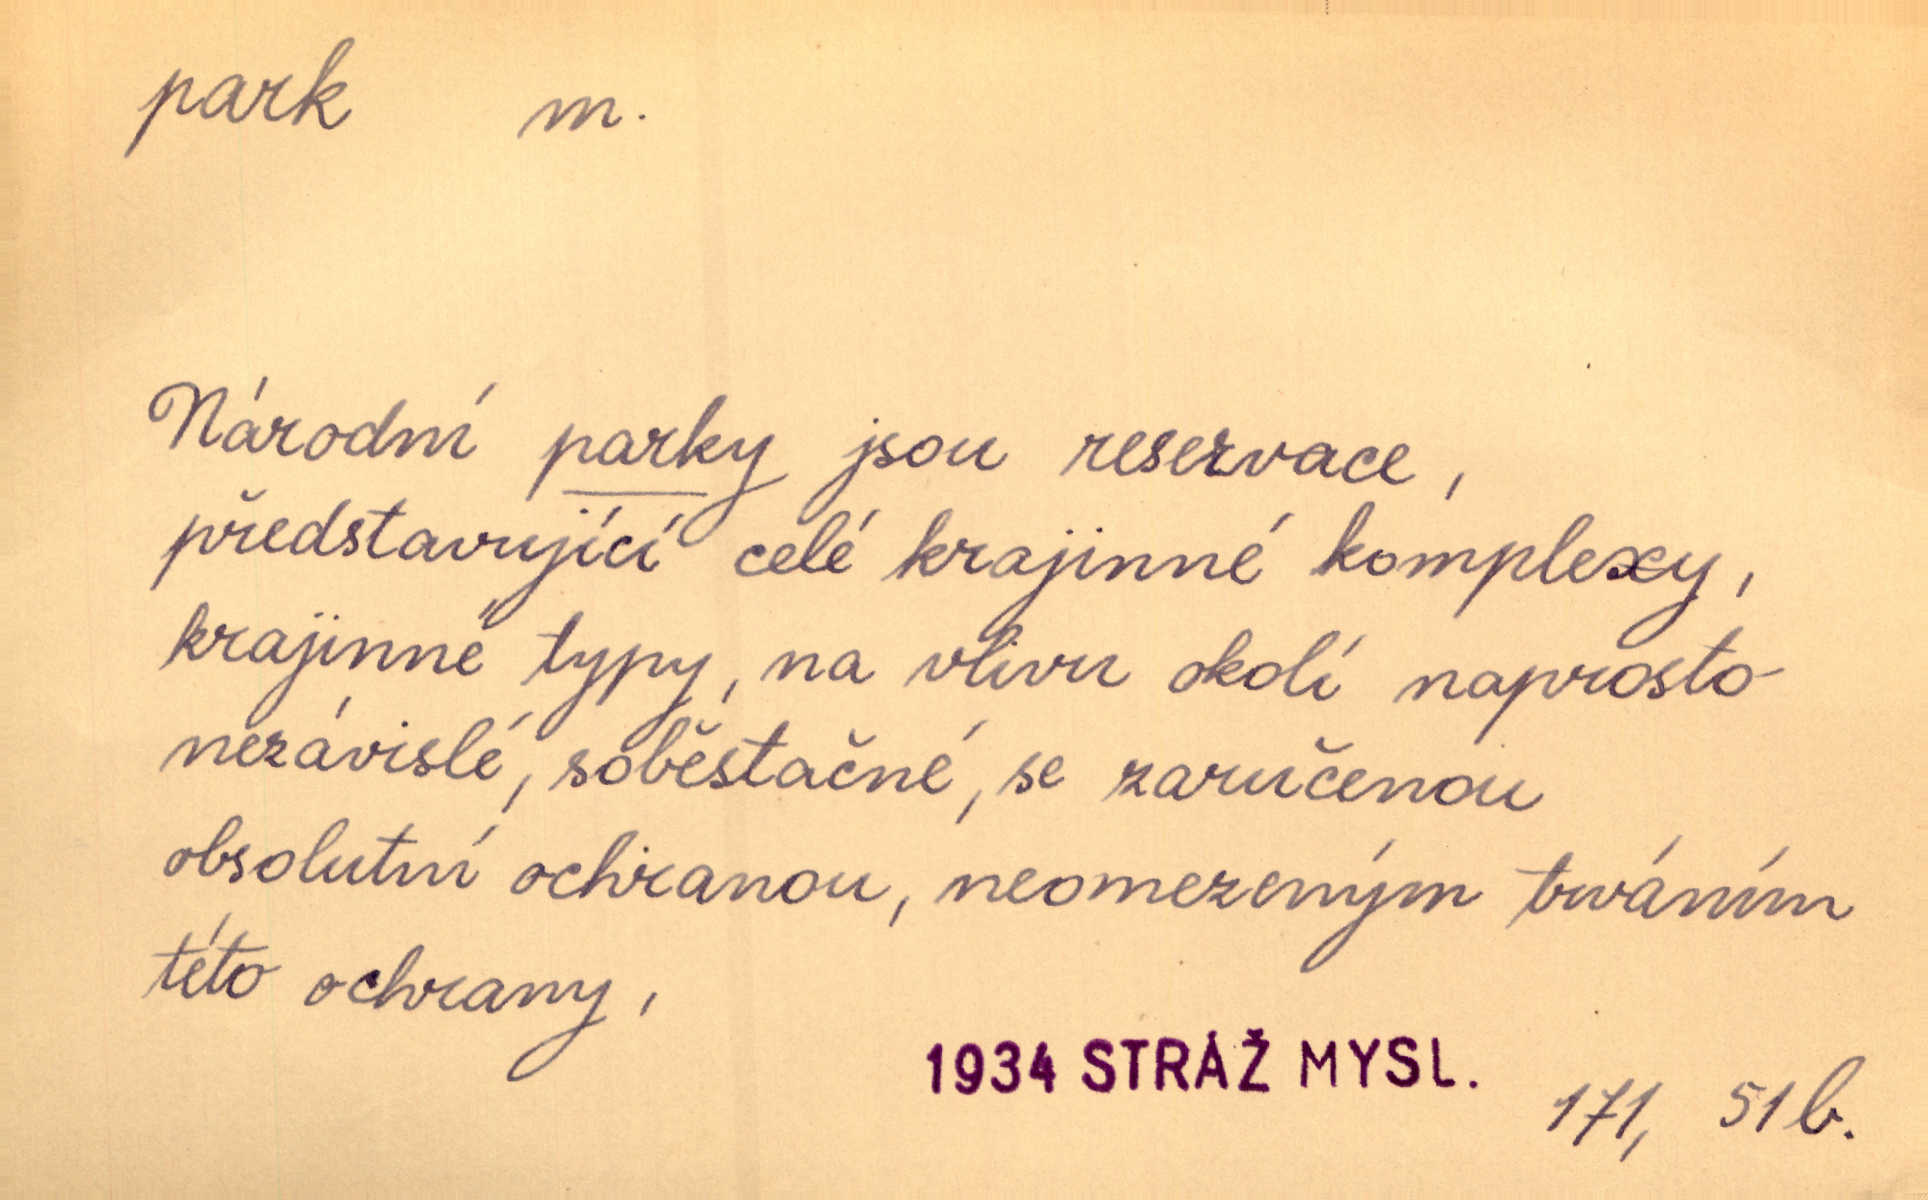 park m.
Národní parky jsou reservace,
představující celé krajinné komplexy,
krajinné typy, na vlivu okolí naprosto
nezávislé, soběstačné, se zaručenou
obsolutní ochranou, neomezeným trváním
této ochrany,
1934 STRÁŽ MYSL.
171, 51 b.